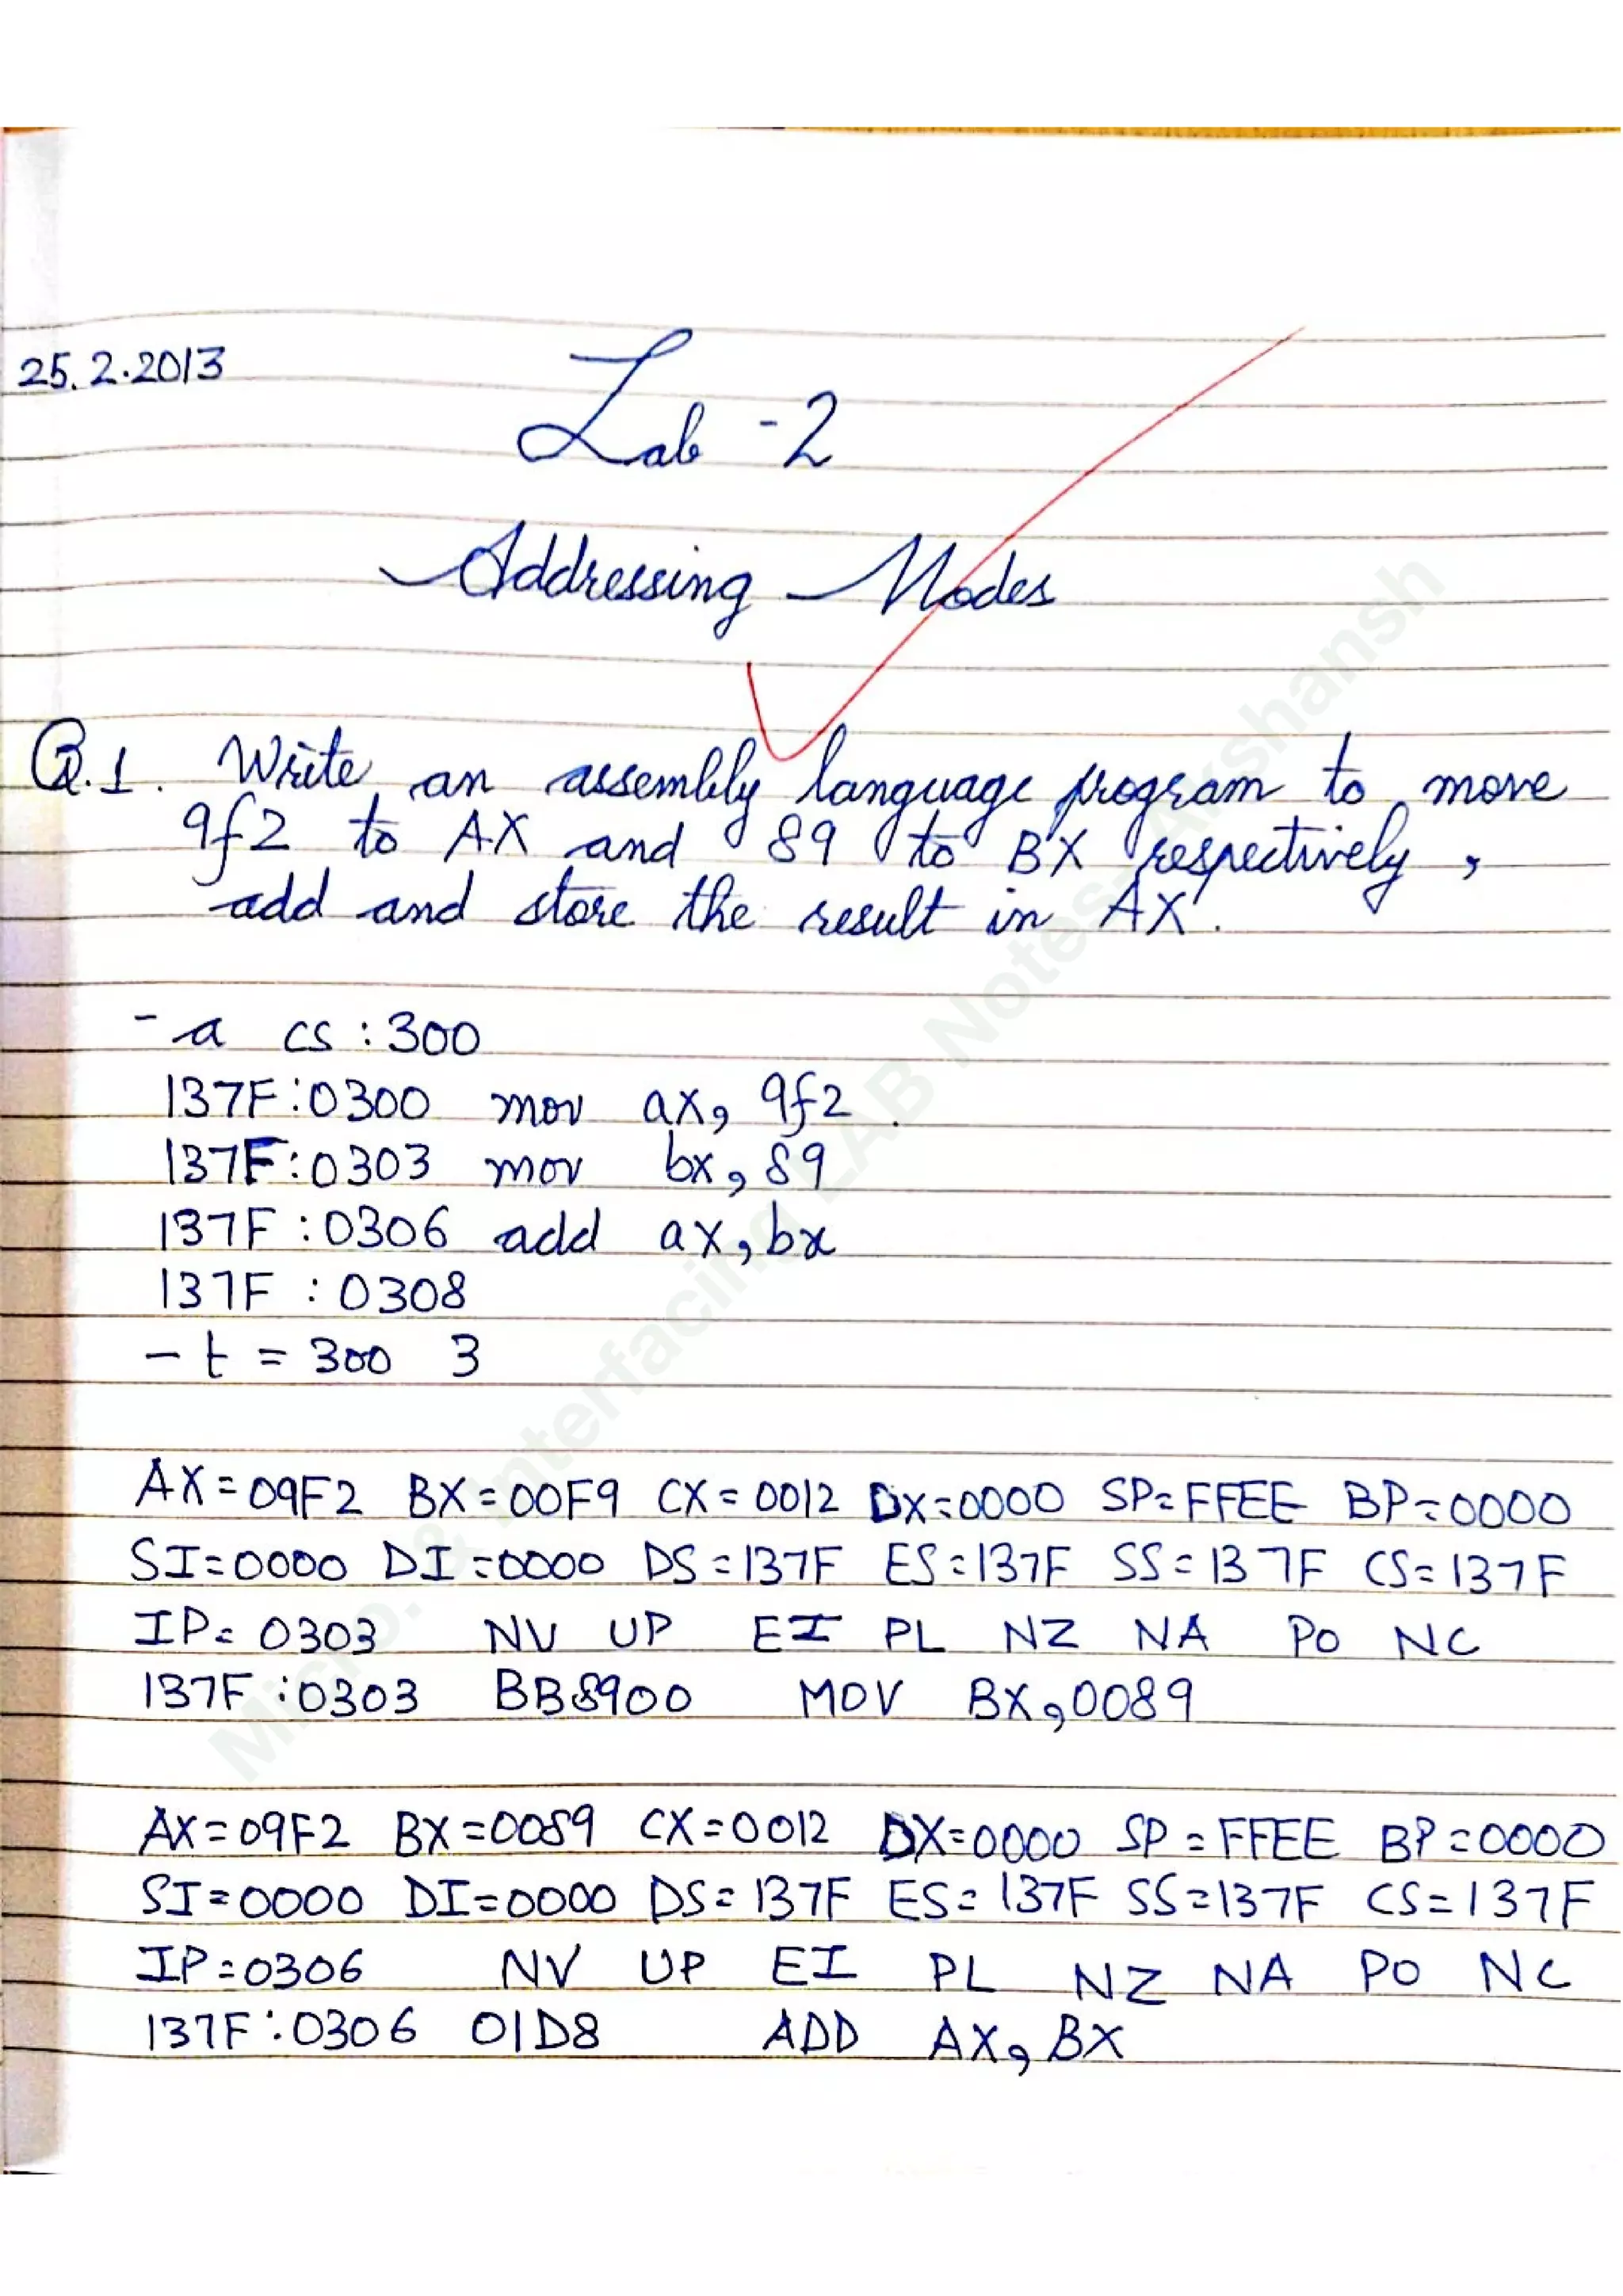 25.2.2013
Lab -2
Addressing Modes
Q.1. Write an assembly language program to move
9f2 to AX and 89 to BX respectively,
add and store the result in AX.
- a cs:300
137F:0300 mov ax, 9f2
137F:0303 mov bx, 89
137F:0306 add ax, bx
137F:0308
- t = 300 3
AX=09F2 BX=00F9 CX=0012 DX=0000 SP=FFEE BP=0000
SI=0000 DI=0000 DS=137F ES=137F SS=137F CS=137F
IP=0303 NV UP EI PL NZ NA PO NC
137F:0303 BB8900 MOV BX,0089
AX=09F2 BX=0089 CX=0012 DX=0000 SP=FFEE BP=0000
SI=0000 DI=0000 DS=137F ES=137F SS=137F CS=137F
IP=0306 NV UP EI PL NZ NA PO NC
137F:0306 01D8 ADD AX, BX
Micro. & Interfacing LAB Notes- Akshansh